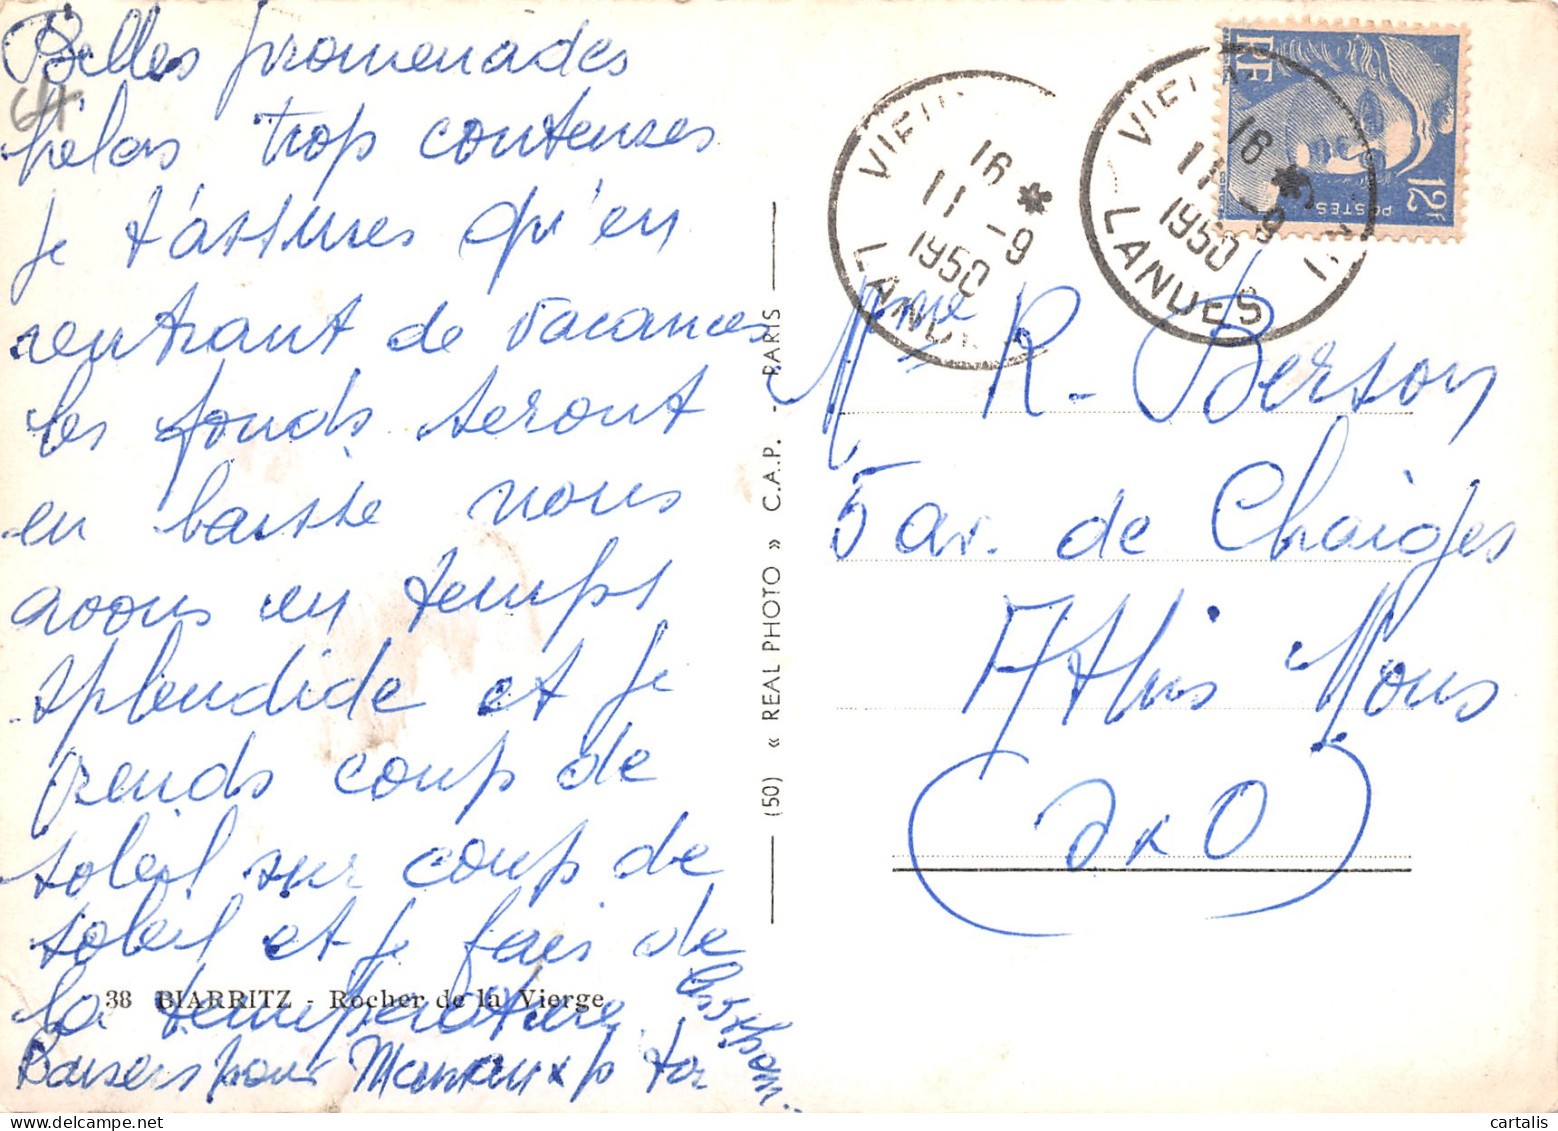 Belles promenades
64
helas trop couteuses
je t'assures qu'en
rentrant de vacances
les fonds seront
en baisse nous
avons un temps
splendide et je
prends coup de
soleil sur coup de
soleil et je fais de
la température
Baisers pour Maman
38 BIARRITZ - Rocher de la Vierge
(50) « REAL PHOTO » C.A.P. - PARIS
16 *
11 -9
1950
LANDES
16 *
11 -9
1950
LANDES
RF
POSTES
12F
Mme R. Berson
5 av. de Chaiges
Athis Mons
(S x O)
cartalis